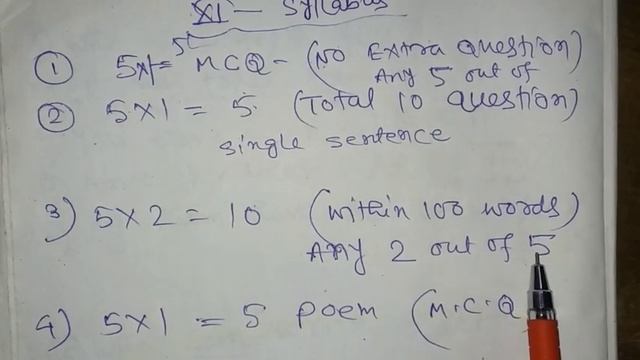 XI - Syllabus
① 5x1= 5 MCQ - (No Extra question)
Any 5 out of
② 5x1 = 5 (Total 10 question)
single sentence
3) 5x2 = 10 (within 100 words)
Any 2 out of 5
4) 5x1 = 5 poem (M.C.Q